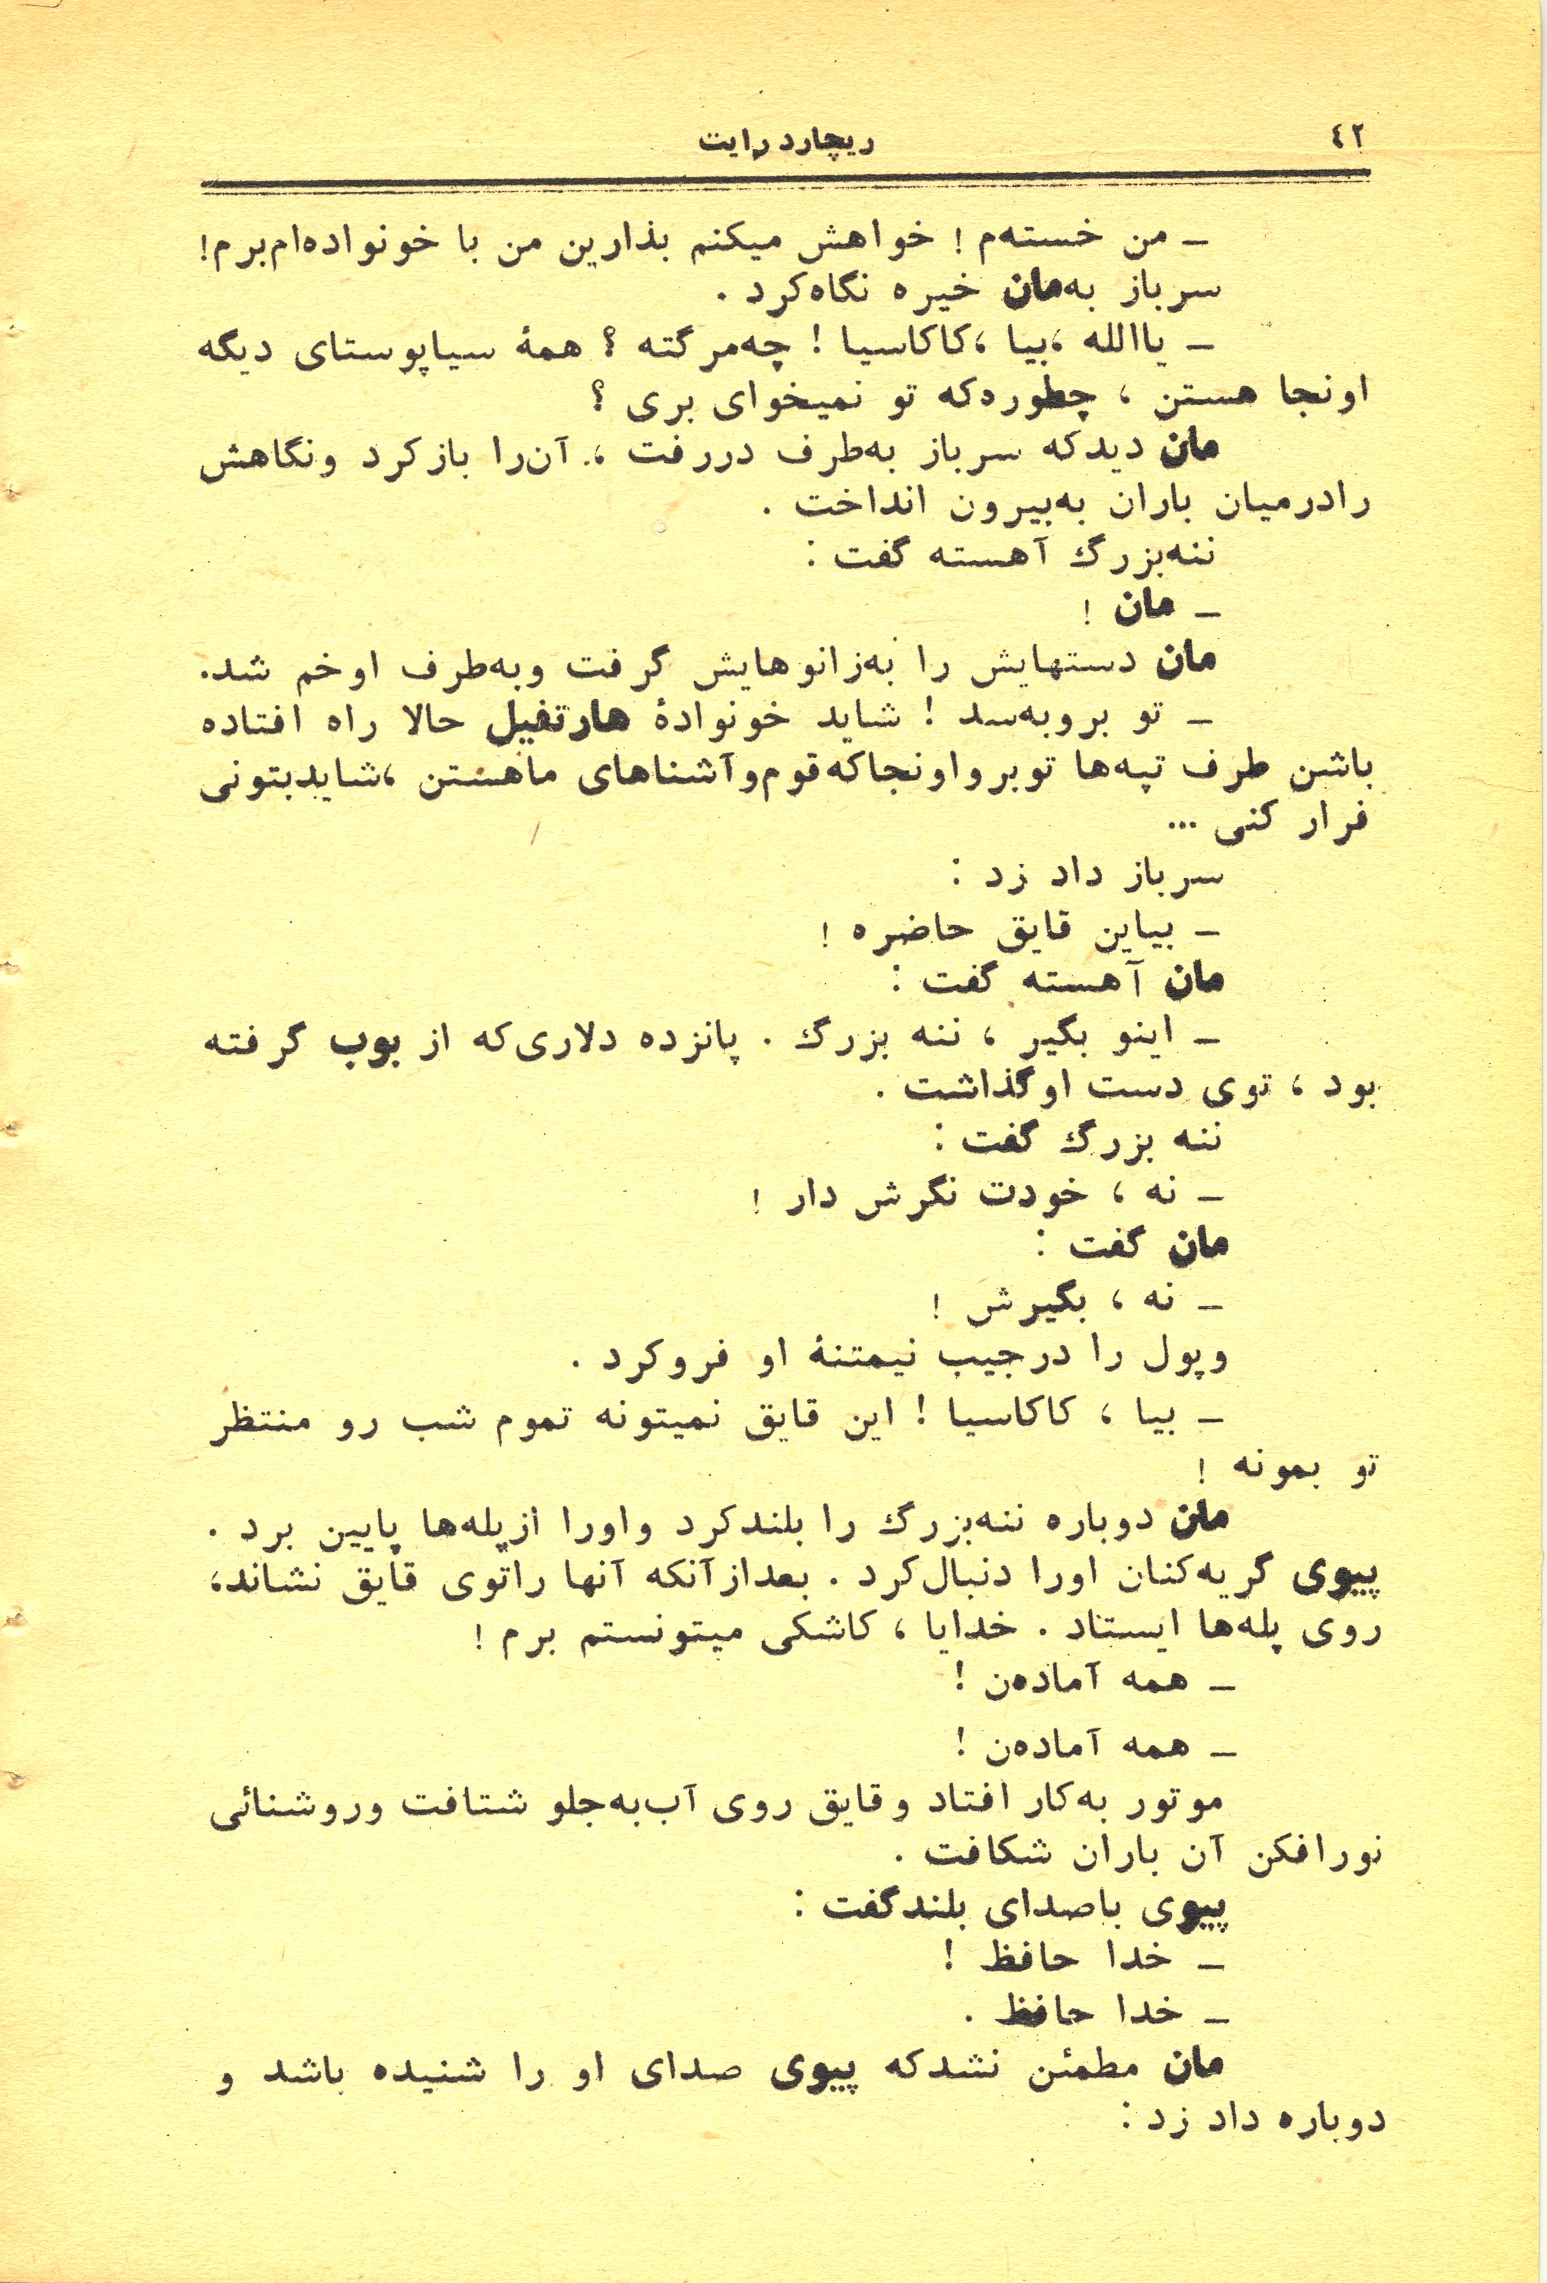 ٤٢
ریچارد رایت
– من خسته‌م ! خواهش میکنم بذارین من با خونواده‌ام‌برم!
سرباز به‌مان خیره نگاه‌کرد .
– یاالله ،بیا ،کاکاسیا ! چه‌مرگته ؟ همهٔ سیاپوستای دیگه
اونجا هستن ، چطوره‌که تو نمیخوای بری ؟
مان دیدکه سرباز به‌طرف دررفت ، آن‌را بازکرد ونگاهش
رادرمیان باران به‌بیرون انداخت .
ننه‌بزرگ آهسته گفت :
– مان !
مان دستهایش را به‌زانوهایش گرفت وبه‌طرف اوخم شد.
– تو بروبه‌سد ! شاید خونوادهٔ هارتفیل حالا راه افتاده
باشن طرف تپه‌ها توبرواونجاکه‌قوم‌وآشناهای ماهستن ،شایدبتونی
فرار کنی ...
سرباز داد زد :
– بیاین قایق حاضره !
مان آهسته گفت :
– اینو بگیر ، ننه بزرگ . پانزده دلاری‌که از بوب گرفته
بود ، توی دست اوگذاشت .
ننه بزرگ گفت :
– نه ، خودت نگرش دار !
مان گفت :
– نه ، بگیرش !
وپول را درجیب نیمتنهٔ او فروکرد .
– بیا ، کاکاسیا ! این قایق نمیتونه تموم شب رو منتظر
تو بمونه !
مان دوباره ننه‌بزرگ را بلندکرد واورا ازپله‌ها پایین برد .
پیوی گریه‌کنان اورا دنبال‌کرد . بعدازآنکه آنها راتوی قایق نشاند،
روی پله‌ها ایستاد . خدایا ، کاشکی میتونستم برم !
– همه آماده‌ن !
– همه آماده‌ن !
موتور به‌کار افتاد وقایق روی آب‌به‌جلو شتافت وروشنائی
نورافکن آن باران شکافت .
پیوی باصدای بلندگفت :
– خدا حافظ !
– خدا حافظ .
مان مطمئن نشدکه پیوی صدای او را شنیده باشد و
دوباره داد زد :